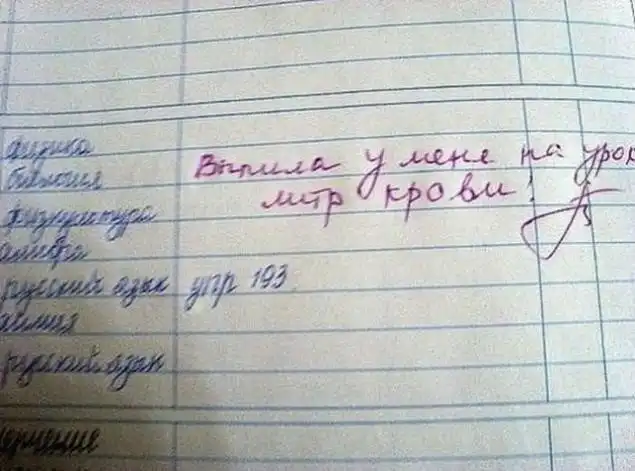 физика
Выпила у меня на урок
биология
литр крови!
физкультура
алгебра
русский язык упр 193
химия
русский язык
черчение